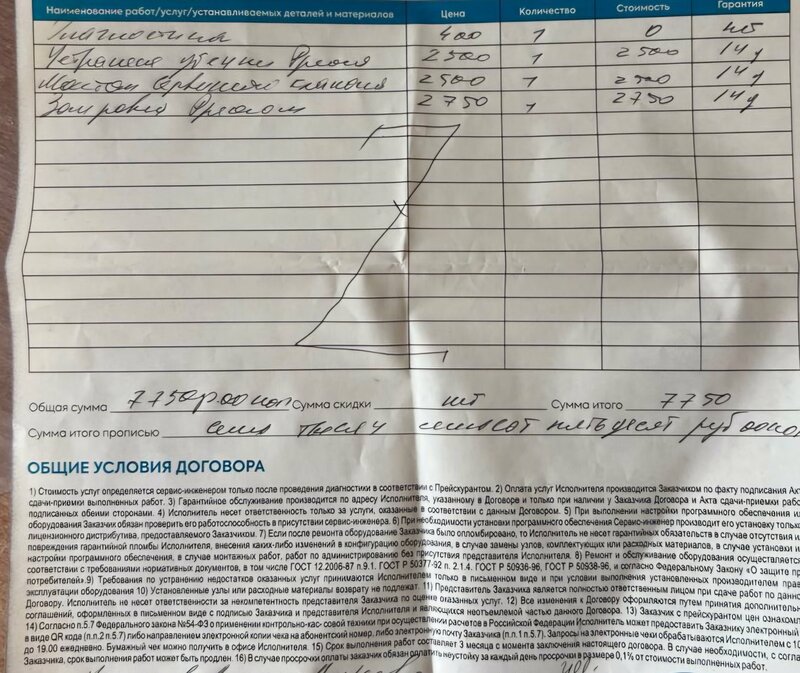 Наименование работ/услуг/устанавливаемых деталей и материалов Цена Количество Стоимость Гарантия
Диагностика 400 1 0 нет
Устранение утечки Фреона 2500 1 2500 14д
Монтаж Сервисного клапана 2500 1 2500 14д
Заправка Фреоном 2750 1 2750 14д
Общая сумма 7750р.00коп Сумма скидки нет Сумма итого 7750
Сумма итого прописью семь тысяч семьсот пятьдесят руб 00коп
ОБЩИЕ УСЛОВИЯ ДОГОВОРА
1) Стоимость услуг определяется сервис-инженером только после проведения диагностики в соответствии с Прейскурантом. 2) Оплата услуг Исполнителя производится Заказчиком по факту подписания Акт
сдачи-приемки выполненных работ. 3) Гарантийное обслуживание производится по адресу Исполнителя, указанному в Договоре и только при наличии у Заказчика Договора и Акта сдачи-приемки рабо
подписанных обеими сторонами. 4) Исполнитель несет ответственность только за услуги, оказанные в соответствии с данным Договором. 5) При выполнении настройки программного обеспечения и
оборудования Заказчик обязан проверить его работоспособность в присутствии сервис-инженера. 6) При необходимости установки программного обеспечения Сервис-инженер производит его установку только
лицензионного дистрибутива, предоставляемого Заказчиком. 7) Если после ремонта оборудование Заказчика было опломбировано, то Исполнитель не несет гарантийных обязательств в случае отсутствия и
повреждения гарантийной пломбы Исполнителя, внесения каких-либо изменений в конфигурацию оборудования, в случае замены узлов, комплектующих или расходных материалов, в случае установки и
настройки программного обеспечения, в случае монтажных работ, работ по администрированию без присутствия представителя Исполнителя. 8) Ремонт и обслуживание оборудования осуществляется
соответствии с требованиями нормативных документов, в том числе ГОСТ 12.2006-87 п.9.1. ГОСТ Р 50377-92 п. 2.1.4. ГОСТ Р 50936-96, ГОСТ Р 50938-96, и согласно Федеральному Закону «О защите пр
потребителей».9) Требования по устранению недостатков оказанных услуг принимаются Исполнителем только в письменном виде и при условии выполнения установленных производителем прав
эксплуатации оборудования 10) Установленные узлы или расходные материалы возврату не подлежат. 11) Представитель Заказчика является полностью ответственным лицом при сдаче работ по данн
Договору. Исполнитель не несет ответственности за некомпетентность представителя Заказчика по оценке оказанных услуг. 12) Все изменения к Договору оформляются путем принятия дополнительн
соглашений, оформленных в письменном виде с подписью Заказчика и представителя Исполнителя и являющихся неотъемлемой частью данного Договора. 13) Заказчик с прейскурантом цен ознакомле
14) Согласно п.5.7 Федерального закона №54-ФЗ о применении контрольно-кассовой техники при осуществлении расчетов в Российской Федерации Исполнитель может предоставить Заказчику электронный
в виде QR кода (п.п.2 п.5.7) либо направлением электронной копии чека на абонентский номер, либо электронную почту Заказчика (п.п.1п.5.7). Запросы на электронные чеки обрабатываются Исполнителем с 10
до 19.00 ежедневно. Бумажный чек можно получить в офисе Исполнителя. 15) Срок выполнения работ составляет 3 месяца с момента заключения настоящего договора. В случае необходимости, с соглас
Заказчика, срок выполнения работ может быть продлен. 16) В случае просрочки оплаты заказчик обязан оплатить неустойку за каждый день просрочки в размере 0,1% от стоимости выполненных работ.